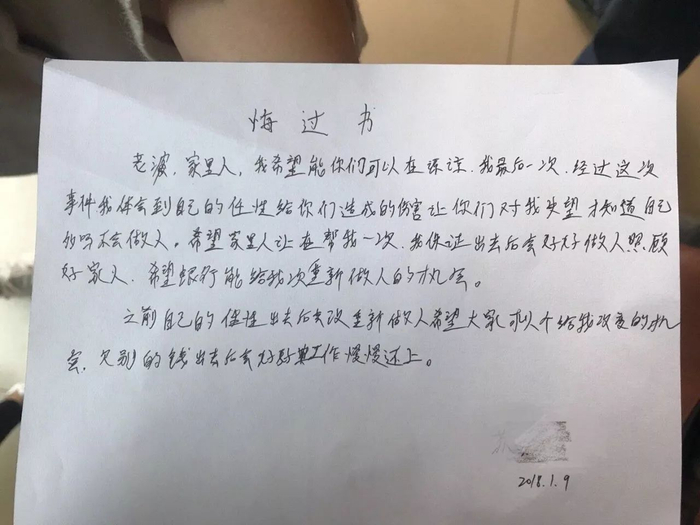 悔过书
老婆、家里人、我希望能你们可以在谅谅我最后一次、经过这次
事件我体会到自己的任性给你们造成的伤害让你们对我失望才知道自己
不会做人。希望家里人让在帮我一次、我保证出去后会好好做人照顾
好家人、希望银行能给我次重新做人的机会。
之前自己的任性出去后会改重新做人希望大家可以个给我改变的机
会、欠别的钱出去后会好好工作慢慢还上。
2018.1.9